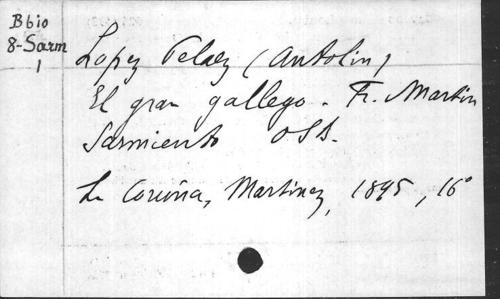 Bbio
8-Sarm
1
Lopez Pelaez (Antolin)
El gran gallego. Fr. Martin
Sarmiento OSB.
La Coruña, Martinez, 1895, 16°